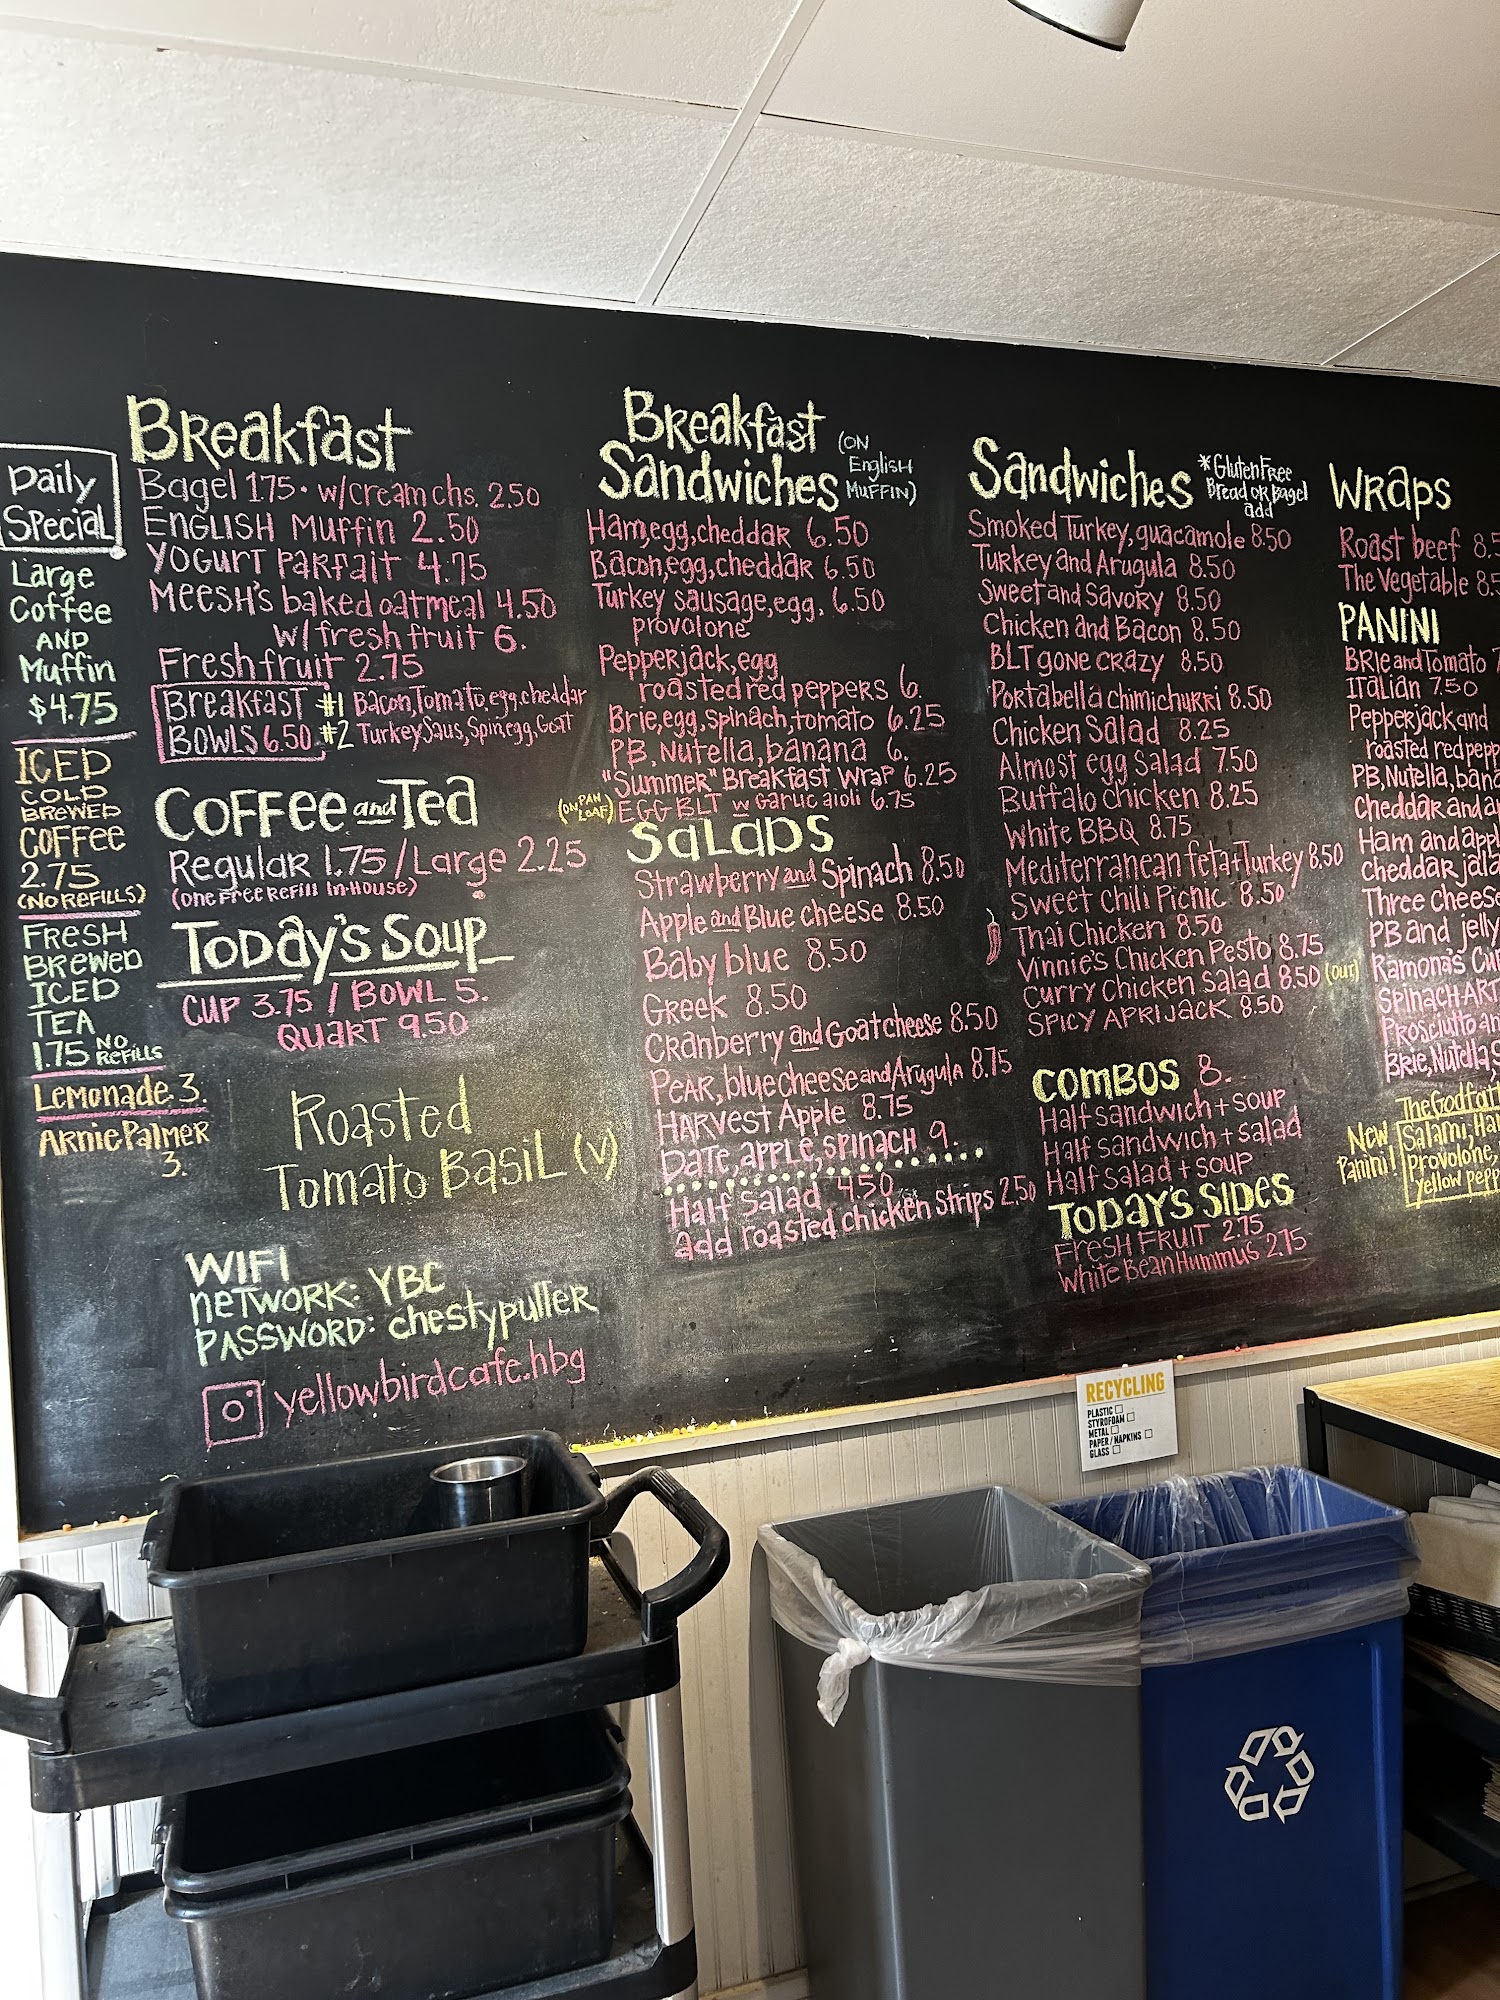 Daily
Special
Large
Coffee
AND
Muffin
$4.75
ICED
COLD
BREWED
COFFEE
2.75
(NO REFILLS)
FRESH
BREWED
ICED
TEA
1.75 NO REFILLS
LEMONADE 3.
ARNIE PALMER
3.
Breakfast
Bagel 1.75 • w/cream chs. 2.50
ENGLISH Muffin 2.50
YOGURT PARFAIT 4.75
MEESH'S baked oatmeal 4.50
w/ fresh fruit 6.
Fresh fruit 2.75
Breakfast #1 Bacon, Tomato, egg, cheddar
BOWLS 6.50 #2 Turkey Saus, Spin, egg, Goat
Coffee and Tea
Regular 1.75 / Large 2.25
(One Free Refill In-House)
Today's Soup
CUP 3.75 / BOWL 5.
QUART 9.50
Roasted
Tomato BasiL (V)
WIFI
NETWORK: YBC
PASSWORD: chestypuller
yellowbirdcafe.hbg
Breakfast
Sandwiches
(ON
English
MUFFIN)
Ham, egg, cheddar 6.50
Bacon, egg, cheddar 6.50
Turkey sausage, egg, 6.50
provolone
Pepperjack, egg
roasted red peppers 6.
Brie, egg, spinach, tomato 6.25
PB, Nutella, banana 6.
"Summer" Breakfast Wrap 6.25
(ON PAN LOAF) EGG BLT w Garlic aioli 6.75
SALADS
Strawberry and Spinach 8.50
Apple and Blue cheese 8.50
Baby blue 8.50
Greek 8.50
Cranberry and Goat cheese 8.50
Pear, blue cheese and Arugula 8.75
HARVEST Apple 8.75
Date, apple, spinach 9.
Half salad 4.50
add roasted chicken strips 2.50
Sandwiches
*Gluten Free
Bread or Bagel
add
Smoked Turkey, guacamole 8.50
Turkey and Arugula 8.50
Sweet and Savory 8.50
Chicken and Bacon 8.50
BLT gone crazy 8.50
Portabella chimichurri 8.50
Chicken Salad 8.25
Almost egg salad 7.50
Buffalo chicken 8.25
White BBQ 8.75
Mediterranean feta + Turkey 8.50
Sweet Chili Picnic 8.50
Thai Chicken 8.50
Vinnie's Chicken Pesto 8.75
Curry Chicken Salad 8.50 (our)
SPICY APRIJACK 8.50
COMBOS 8.
Half sandwich + soup
Half sandwich + salad
Half salad + soup
TODAY'S SIDES
FRESH FRUIT 2.75
White Bean Hummus 2.75
Wraps
Roast beef 8.5
The Vegetable 8.5
PANINI
BRIE and Tomato
ITALIAN 7.50
Pepperjack and
roasted red pepp
PB, Nutella, bana
Cheddar and a
Ham and appl
cheddar jala
Three cheese
PB and jelly
Ramona's Cu
SPINACH ART
Prosciutto an
Brie, Nutella, S
New
Panini!
The Godfat
Salami, Ha
provolone,
yellow pepp
RECYCLING
PLASTIC
STYROFOAM
METAL
PAPER/NAPKINS
GLASS